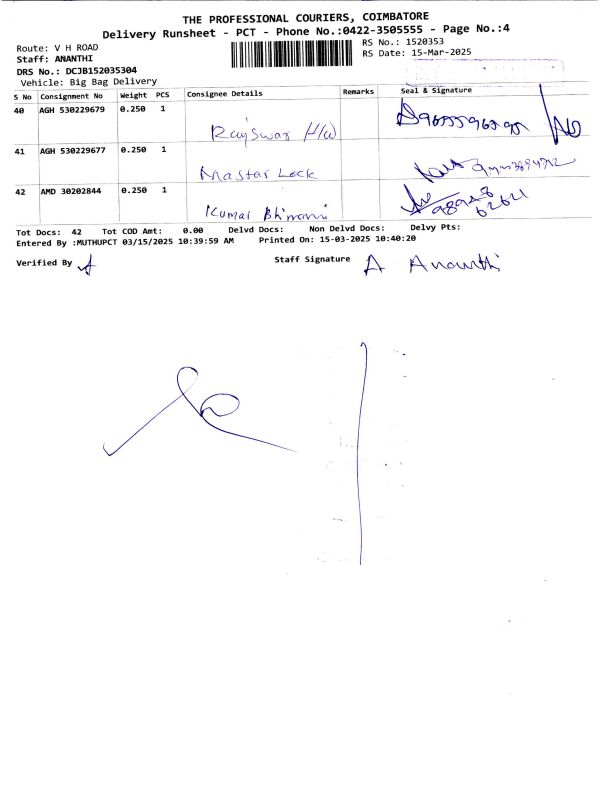 THE PROFESSIONAL COURIERS, COIMBATORE
Delivery Runsheet - PCT - Phone No.:0422-3505555 - Page No.:4
Route: V H ROAD
RS No.: 1520353
Staff: ANANTHI
RS Date: 15-Mar-2025
DRS No.: DCJB152035304
Vehicle: Big Bag Delivery
S No Consignment No Weight PCS Consignee Details Remarks Seal & Signature
40 AGH 530229679 0.250 1
Rajswar H/W
41 AGH 530229677 0.250 1
Mastar Lock
42 AMD 30202844 0.250 1
Kumar Bhimani
Tot Docs: 42 Tot COD Amt: 0.00 Delvd Docs: Non Delvd Docs: Delvy Pts:
Entered By :MUTHUPCT 03/15/2025 10:39:59 AM Printed On: 15-03-2025 10:40:20
Verified By Staff Signature A Ananthi